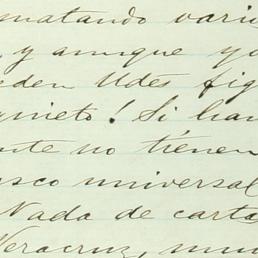 matando variu
y aunque yo
den Udes fig
quieto! Si han
nte no tienen
sco universal
Nada de carta
Veracruz, muc